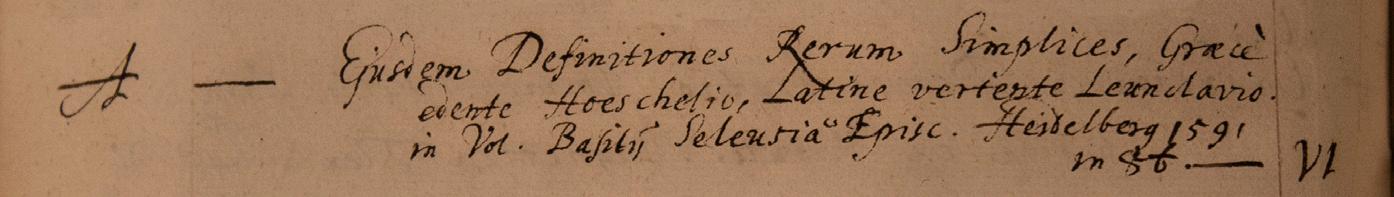 A — Ejusdem Definitiones Rerum Simplices, Græcè
edente Hoeschelio, Latine vertente Leunclavio.
in Vol. Basilij Seleusiæ Episc. Heidelberg 1591
in 8o. — VI